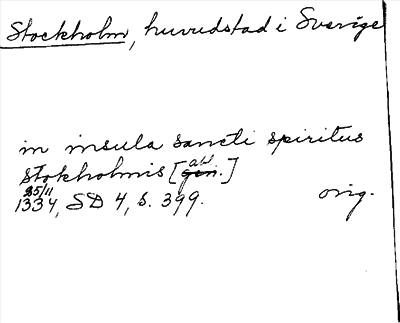 Stockholm, huvudstad i Sverige
in insula sancti spiritus
Stokholmis [gen. abl.]
25/11
1334, SD 4, s. 399. orig.